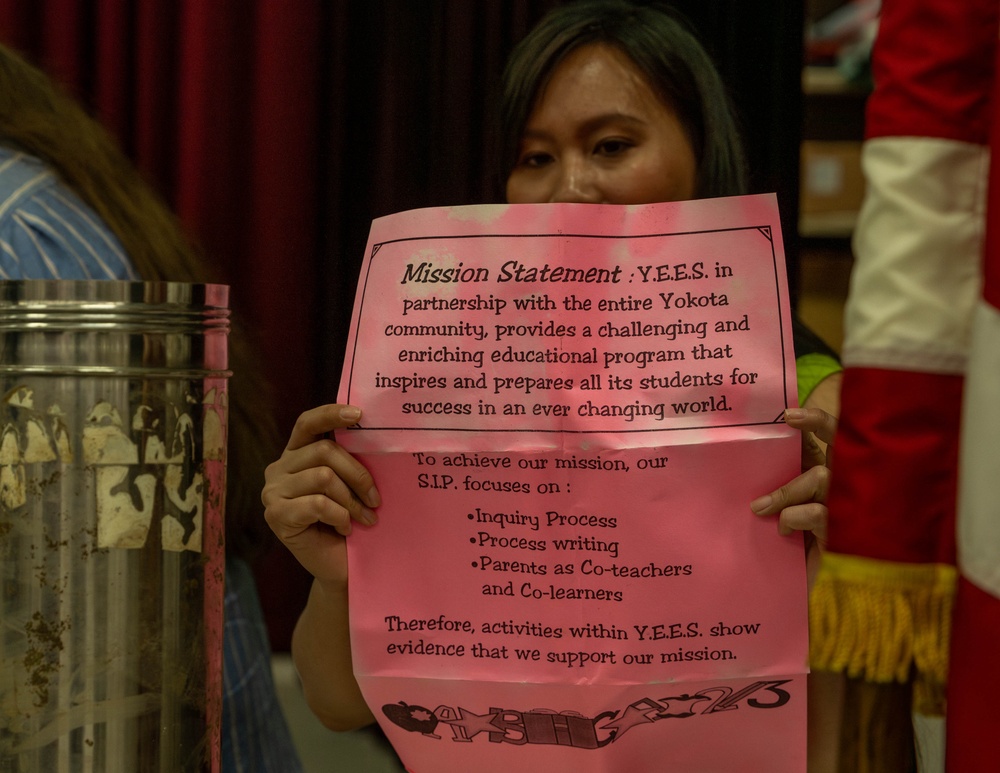 Mission Statement : Y.E.E.S. in
partnership with the entire Yokota
community, provides a challenging and
enriching educational program that
inspires and prepares all its students for
success in an ever changing world.
To achieve our mission, our
S.I.P. focuses on :
•Inquiry Process
•Process writing
•Parents as Co-teachers
and Co-learners
Therefore, activities within Y.E.E.S. show
evidence that we support our mission.